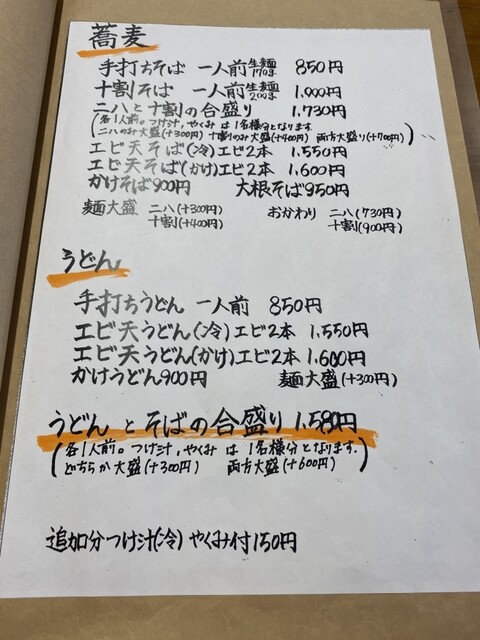 蕎麦
手打ちそば 一人前 生麺170g 850円
十割そば 一人前 生麺200g 1,000円
二八と十割の合盛り 1,730円
(各1人前。つけ汁,やくみ は 1名様分となります
二八のみ大盛(+300円) 十割のみ大盛(+400円) 両方大盛り(+700円))
エビ天そば(冷)エビ2本 1,550円
エビ天そば(かけ)エビ2本 1,600円
かけそば900円 大根そば950円
麺大盛 二八(+300円) おかわり 二八(730円)
十割(+400円) 十割(900円)
うどん
手打ちうどん 一人前 850円
エビ天うどん(冷)エビ2本 1,550円
エビ天うどん(かけ)エビ2本 1,600円
かけうどん900円 麺大盛(+300円)
うどんとそばの合盛り 1,580円
(各1人前。つけ汁,やくみ は 1名様分となります.
どちらか大盛(+300円) 両方大盛(+600円))
追加分つけ汁(冷)やくみ付150円